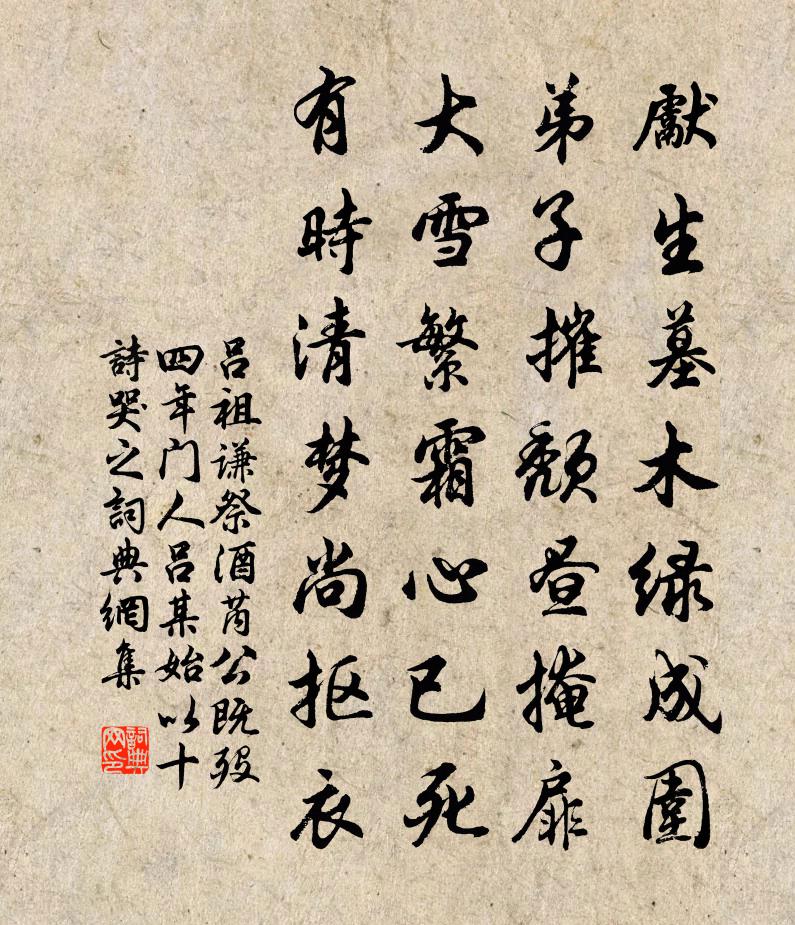 獻生墓木緑成圍
弟子摧頹昼掩扉
大雪繁霜心已死
有時清梦尚抠衣
吕祖谦祭酒芮公既殁
四年门人吕某始以十
詩哭之詞典網集
詞典
网印